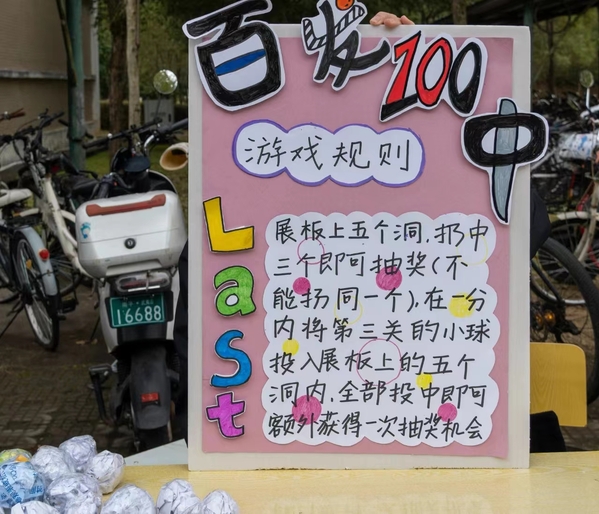 百发100中
游戏规则
Last
展板上五个洞,扔中
三个即可抽奖(不
能扔同一个),在一分
内将第三关的小球
投入展板上的五个
洞内,全部投中即可
额外获得一次抽奖机会
16688